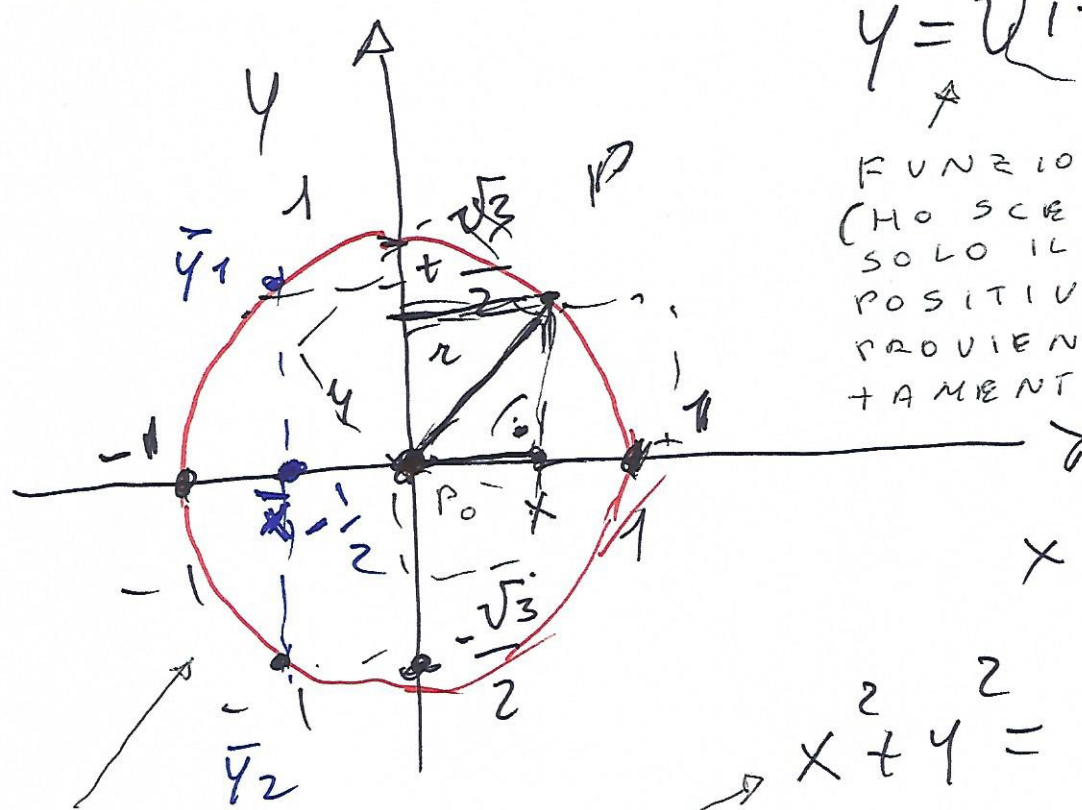 y = √1
y
FUNZIO
(HO SCE
SOLO IL
POSITIV
PROVIEN
TAMENT
P
1
√3
2
ȳ1
t
r
y
-1
1
x̄ -1
2
P0
x
1
-1
-√3
2
-1
ȳ2
x
x² + y² =